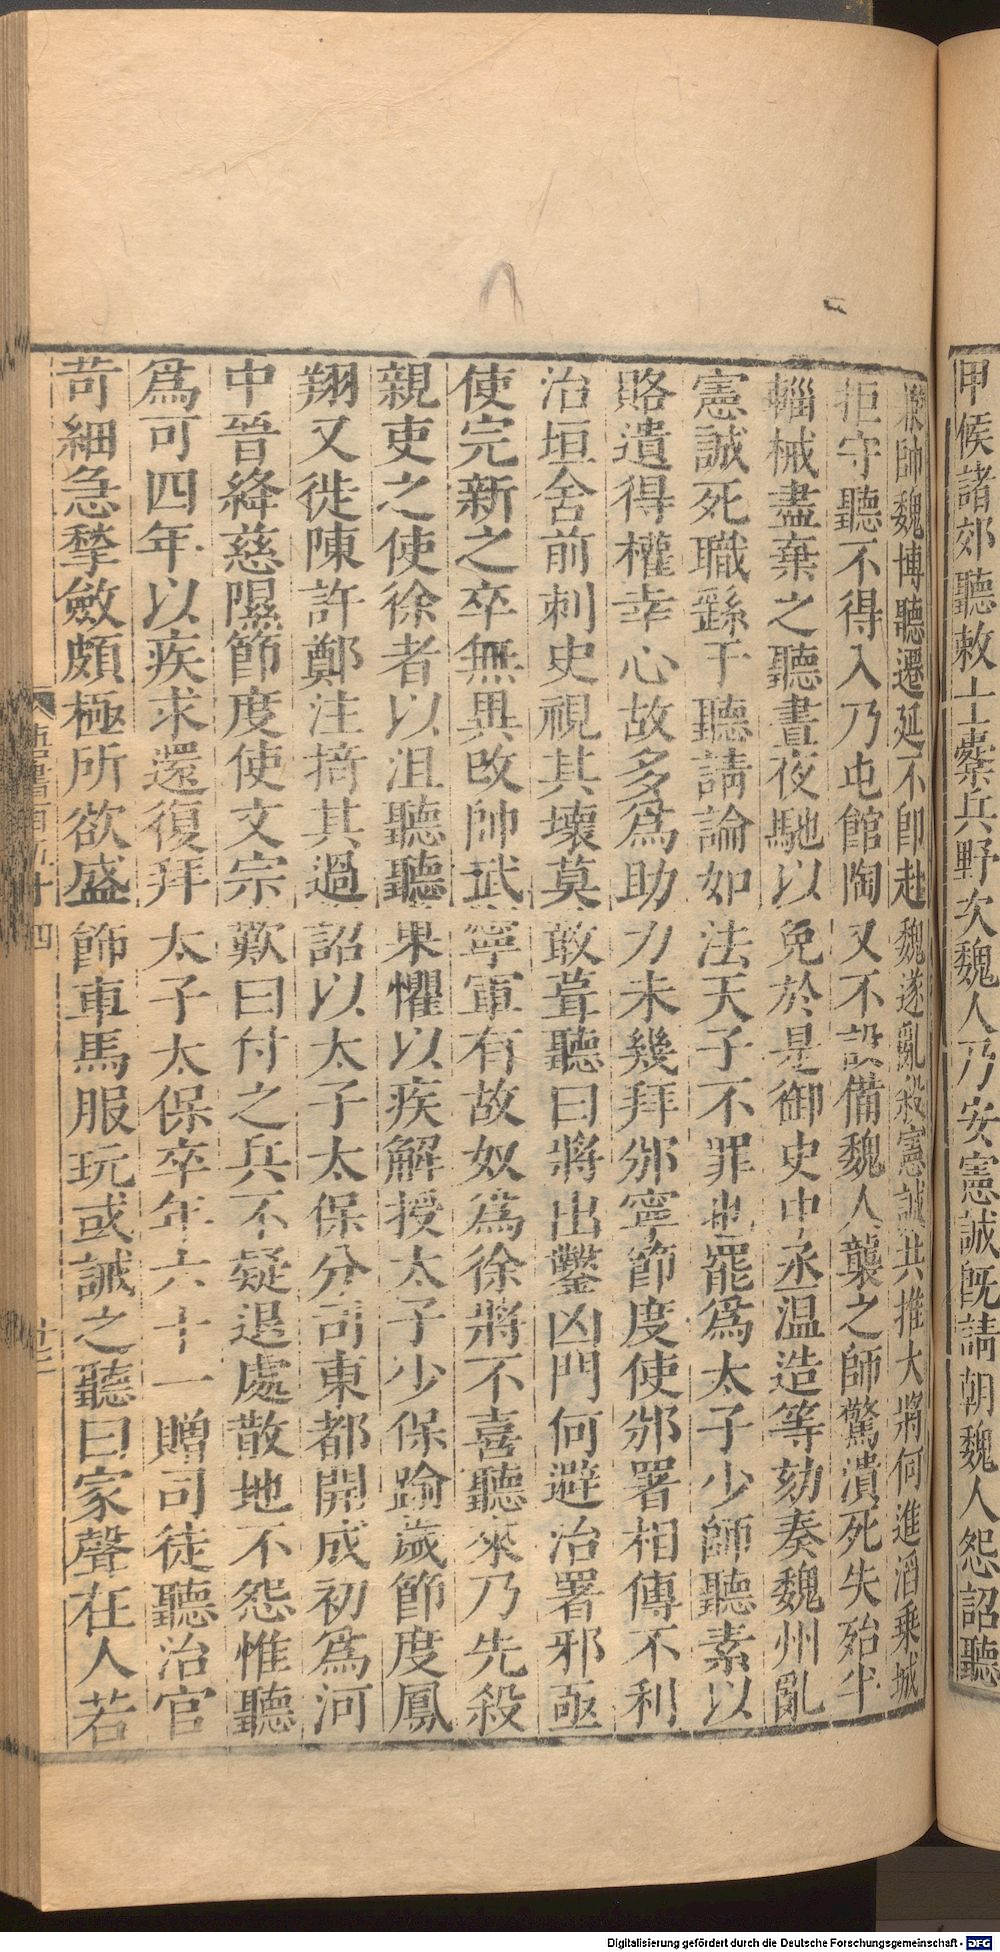 甲候諸郊聽敕士櫜兵野次魏人乃安憲誠旣請朝魏人怨詔聽
兼帥魏博聽遷延不卽赴魏遂亂殺憲誠共推大將何進滔乗城
拒守聽不得入乃屯館陶又不設備魏人襲之師驚潰死失殆半
輜械盡棄之聽晝夜馳以免於是御史中丞温造等劾奏魏州亂
憲誠死職繇于聽請論如法天子不罪也罷爲太子少師聽素以
賂遺得權幸心故多爲助力未幾拜邠寧節度使邠署相傳不利
治垣舍前刺史視其壞莫敢葺聽曰將出鑿凶門何避治署邪亟
使完新之卒無異改帥武寧軍有故奴爲徐將不喜聽來乃先殺
親吏之使徐者以沮聽聽果懼以疾解授太子少保踰歲節度鳳
翔又徙陳許鄭注摘其過詔以太子太保分司東都開成初爲河
中晉絳慈隰節度使文宗歎曰付之兵不疑退處散地不怨惟聽
爲可四年以疾求還復拜太子太保卒年六十一贈司徒聽治官
苛細急摯斂頗極所欲盛飾車馬服玩或誡之聽曰家聲在人若
唐書百五十四
十三
Digitalisierung gefördert durch die Deutsche Forschungsgemeinschaft - DFG